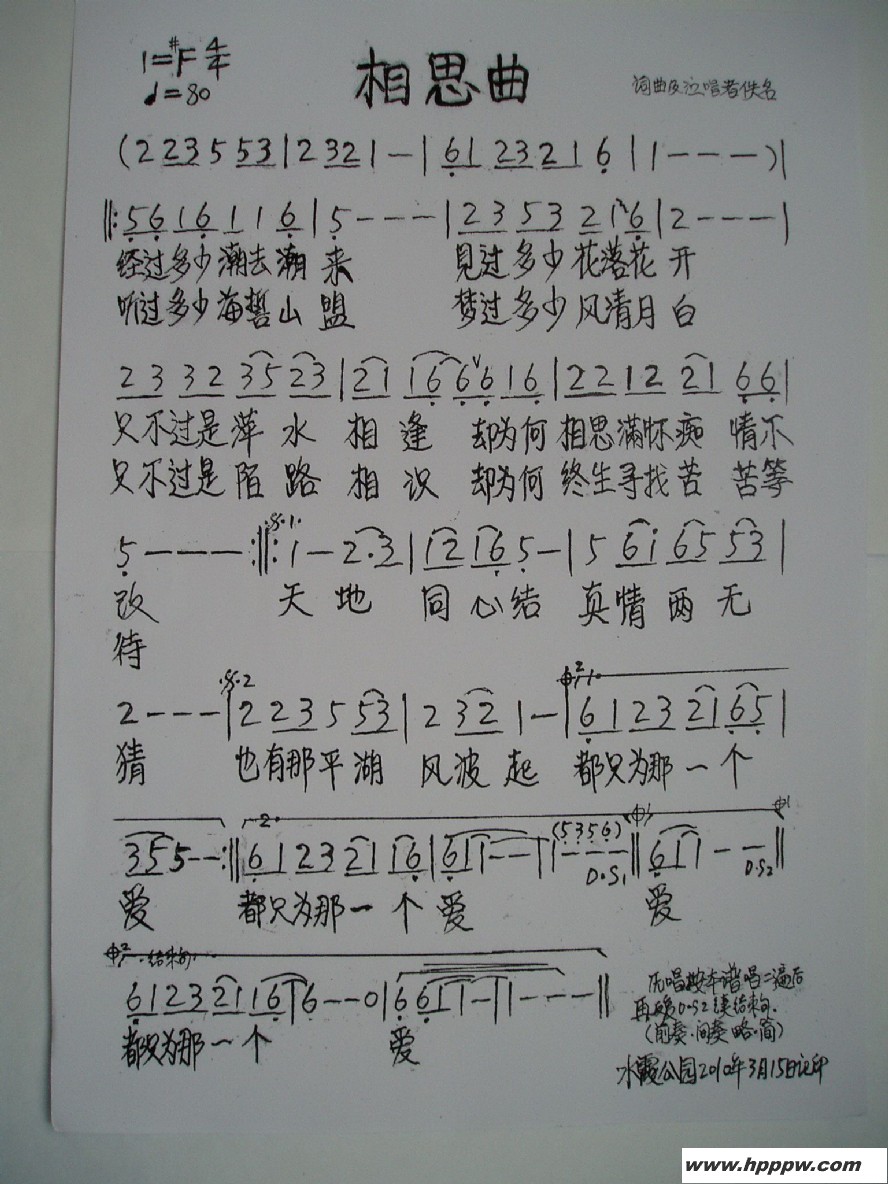 1=#F 4/4
相思曲
♩=80
词曲及泣唱者佚名
(2 2 3 5 5 3 | 2 3 2 1 — | 6 1 2 3 2 1 6 | 1 — — — )|
‖: 5 6 1 6 1 1 6 | 5 — — — | 2 3 5 3 2 1 6 | 2 — — — |
经过多少潮去潮来 见过多少花落花开
听过多少海誓山盟 梦过多少风清月白
2 3 3 2 3 5 2 3 | 2 1 1 6 6 ∨ 6 1 6 | 2 2 1 2 2 1 6 6 |
只不过是萍水相逢 却为何相思满怀痴情不
只不过是陌路相识 却为何终生寻找苦苦等
5 — — — :‖: 1 — 2 · 3 | 1 2 1 6 5 — | 5 6 i 6 5 5 3 |
改 天地同心结 真情两无
待
2 — — — | 2 2 3 5 5 3 | 2 3 2 1 — | 6 1 2 3 2 1 6 5 |
猜 也有那平湖风波起 都只为那一个
3 5 5 — — :‖ 6 1 2 3 2 1 1 6 | 6 1 1 — — | 1 — (5 3 5 6) D.S1 ‖ 6 1 1 — — D.S2 ‖
爱 都只为那一个爱 爱
结束句
6 1 2 3 2 1 1 6 | 6 — — 0 | 6 6 1 1 — | 1 — — — ‖
都只为那一个 爱
再 D.S2 结束句.
(前奏.间奏略.简)
水霞公园2010年3月15日记印
www.hpppw.com